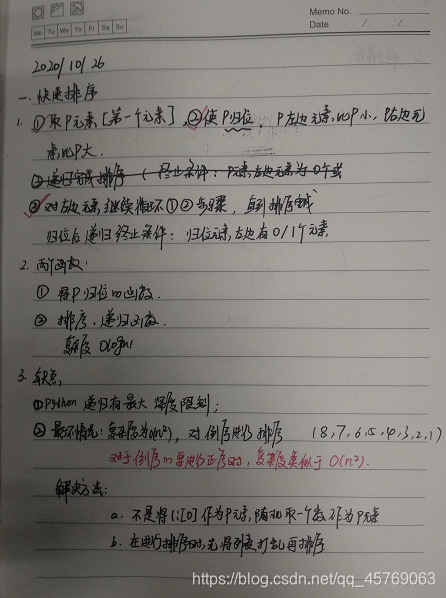 Memo No.
Mo Tu We Th Fr Sa Su
Date / /
2020/10/26
一. 快速排序
1. ①取P元素[第一个元素], ②使P归位, P左边元素比P小, P右边元
素比P大.
③递归完成排序 (终止条件: P元素左边元素为0个或
③对左边元素继续循环①②步骤, 直到排序完成
归位后递归终止条件: 归位元素左边有0/1个元素
2. 两个函数:
① 将P归位的函数.
② 排序、递归函数.
复杂度 O(logn)
3. 缺点
①Python 递归有最大深度限制;
②最坏情况: 复杂度为O(n²), 对倒序进行排序 (8,7,6,5,4,3,2,1)
对于倒序的需进行正序时, 复杂度类似于 O(n²).
解决方法:
a. 不是将li[0]作为P元素, 随机取一个数作为P元素
b. 在进行排序时, 先将列表打乱再排序
https://blog.csdn.net/qq_45769063